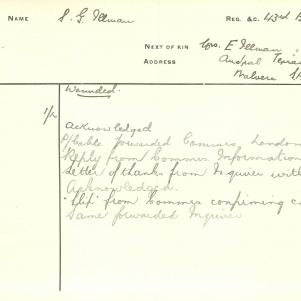 NAME S. G. Illman REG. &C. 43rd B
NEXT OF KIN Mrs. E Illman
ADDRESS Austral Terrace
Malvern S.A
Wounded.
1/2
Acknowledged
P/Cable forwarded Commrs, London
Reply from Commrs Information
Letter of thanks from Inquirer with
Acknowledged.
"Slip" from Commrs confirming ca
Same forwarded Inquirer